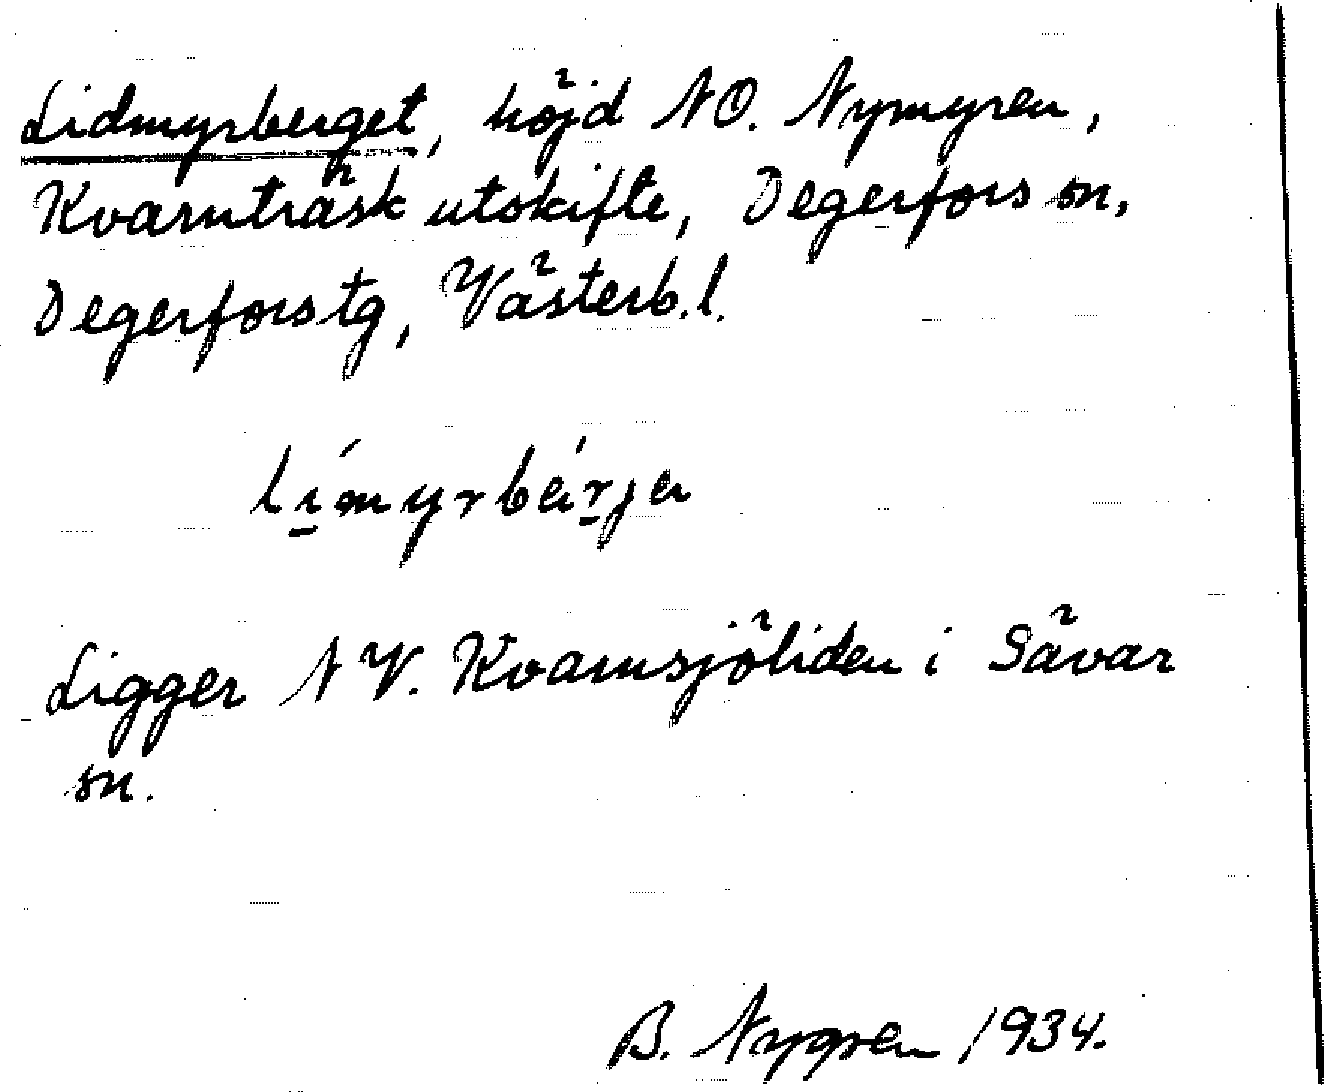 Lidmyrberget, höjd NO. Nymyren,
Kvarnträsk utskifte, Degerfors sn,
Degerfors tg, Västerb. l.
Ligger NV. Kvarnsjöliden i Sävar
sn.
B. Nygren 1934.